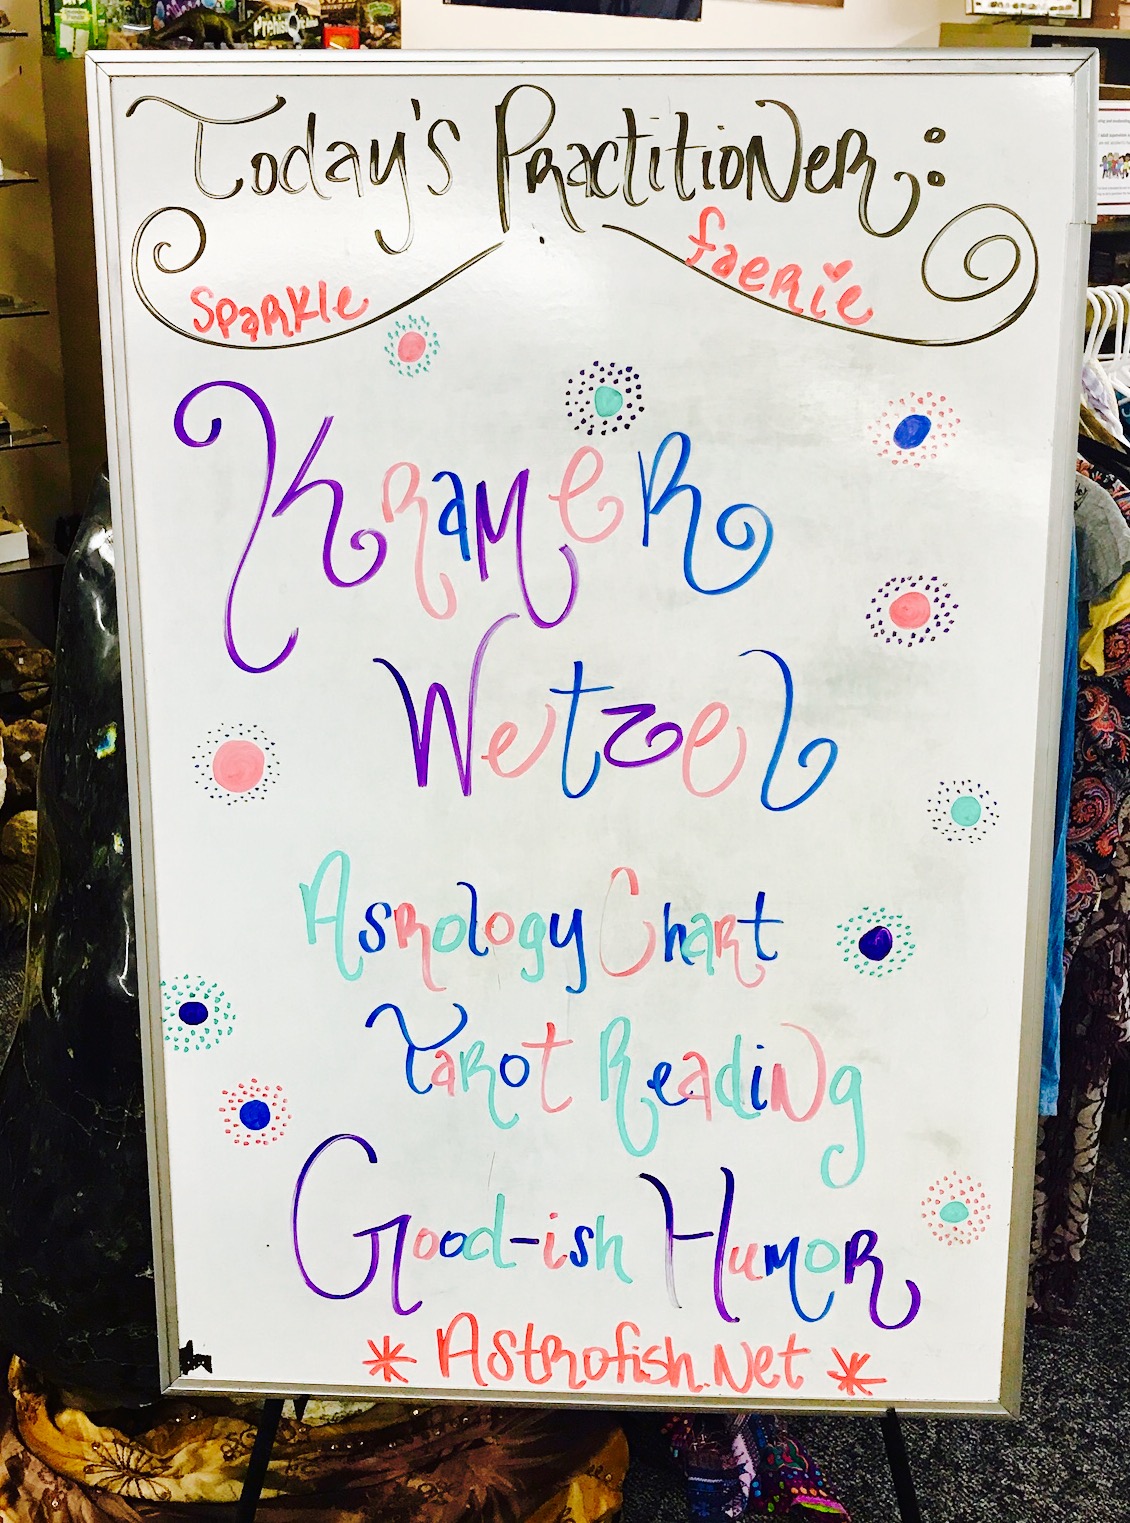 Prehistoric
Today's Practitioner:
Sparkle
faerie
Kramer
Wetzel
Asrology Chart
Tarot Reading
Good-ish Humor
* Astrofish.Net *